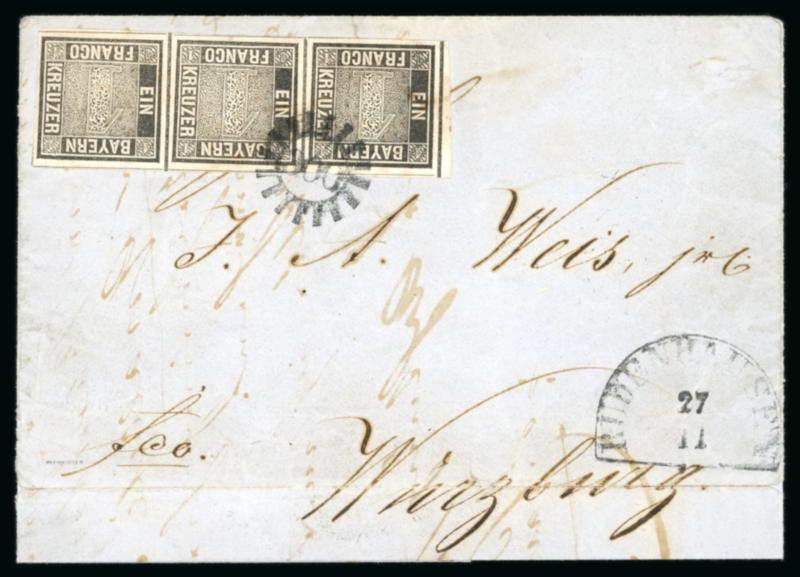 FRANCO FRANCO FRANCO
KREUZER EIN KREUZER EIN KREUZER EIN
BAYERN BAYERN BAYERN
J. A. Weis, jr
RÜDENHAUSEN
27
11
fco.
Würzburg.